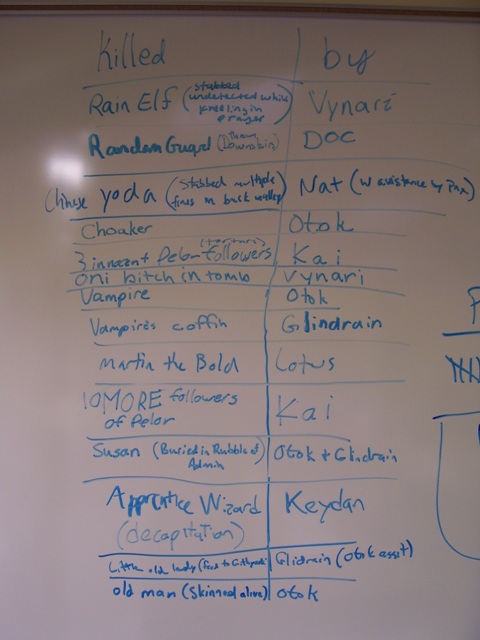 Killed by
Rain Elf (stabbed undetected while kneeling in prayer) Vynari
Random Guard DOC
Chinese yoda (Stabbed multiple times in back) Nat (w assistance by
Choaker Otok
3 innocent Pelor followers Kai
oni bitch in tomb Vynari
Vampire Otok
Vampires coffin Glindrain
Martin the Bold Lotus
10 MORE followers of Pelor Kai
Susan (Buried in Rubble of Admin) Otok + Glindrain
Apprentice Wizard (decapitation) Keydan
Little old lady (Feed to Glidrain (Otok assist)
old man (Skinned alive) Otok